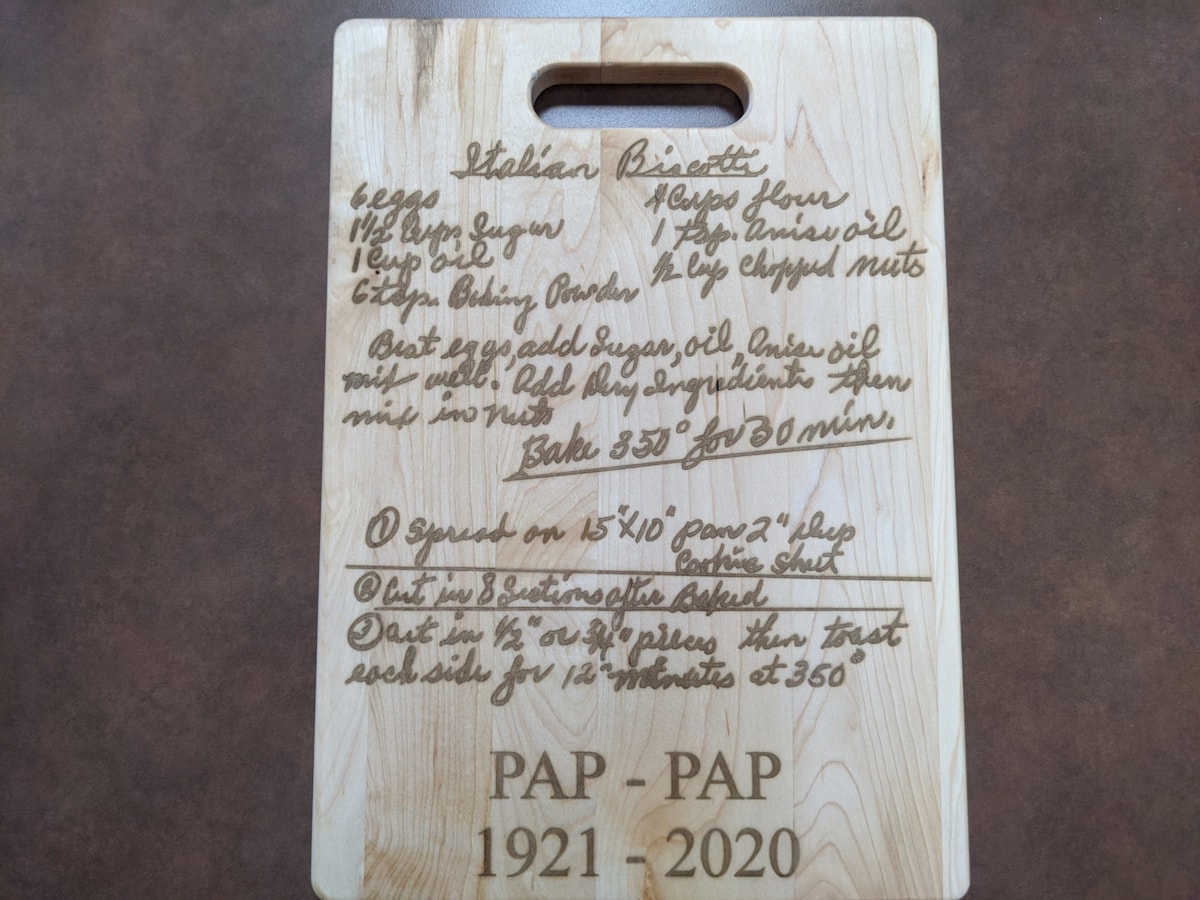 Italian Biscotti
6 eggs
1½ Cups Sugar
1 Cup oil
6 tsp. Baking Powder
4 Cups flour
1 tsp. Anise oil
½ Cup Chopped nuts
Beat eggs, add Sugar, oil, Anise oil
mix well. Add Dry Ingredients then
mix in nuts
Bake 350° for 30 min.
① Spread on 15"X10" pan 2" deep
Cookie Sheet
② Cut in 8 Sections after Baked
③ Cut in ½" or ¾" pieces then toast
each side for 12 minutes at 350°
PAP - PAP
1921 - 2020